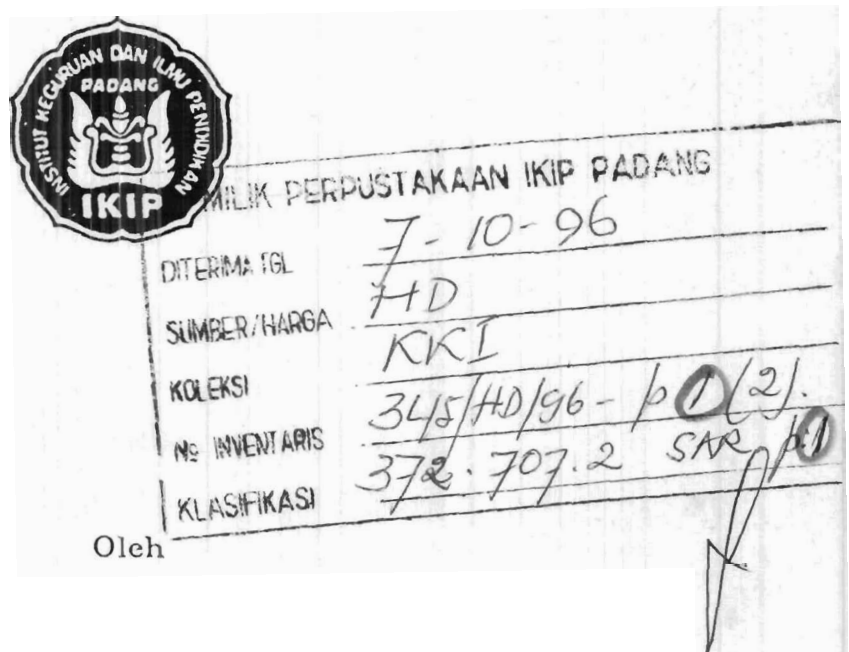 INSTITUT KEGURUAN DAN ILMU PENDIDIKAN
PADANG
IKIP
MILIK PERPUSTAKAAN IKIP PADANG
DITERIMA TGL 7-10-96
SUMBER/HARGA HD
KOLEKSI KKI
No INVENTARIS 345/HD/96-p1(2).
KLASIFIKASI 372.707.2 SAR p.1
Oleh